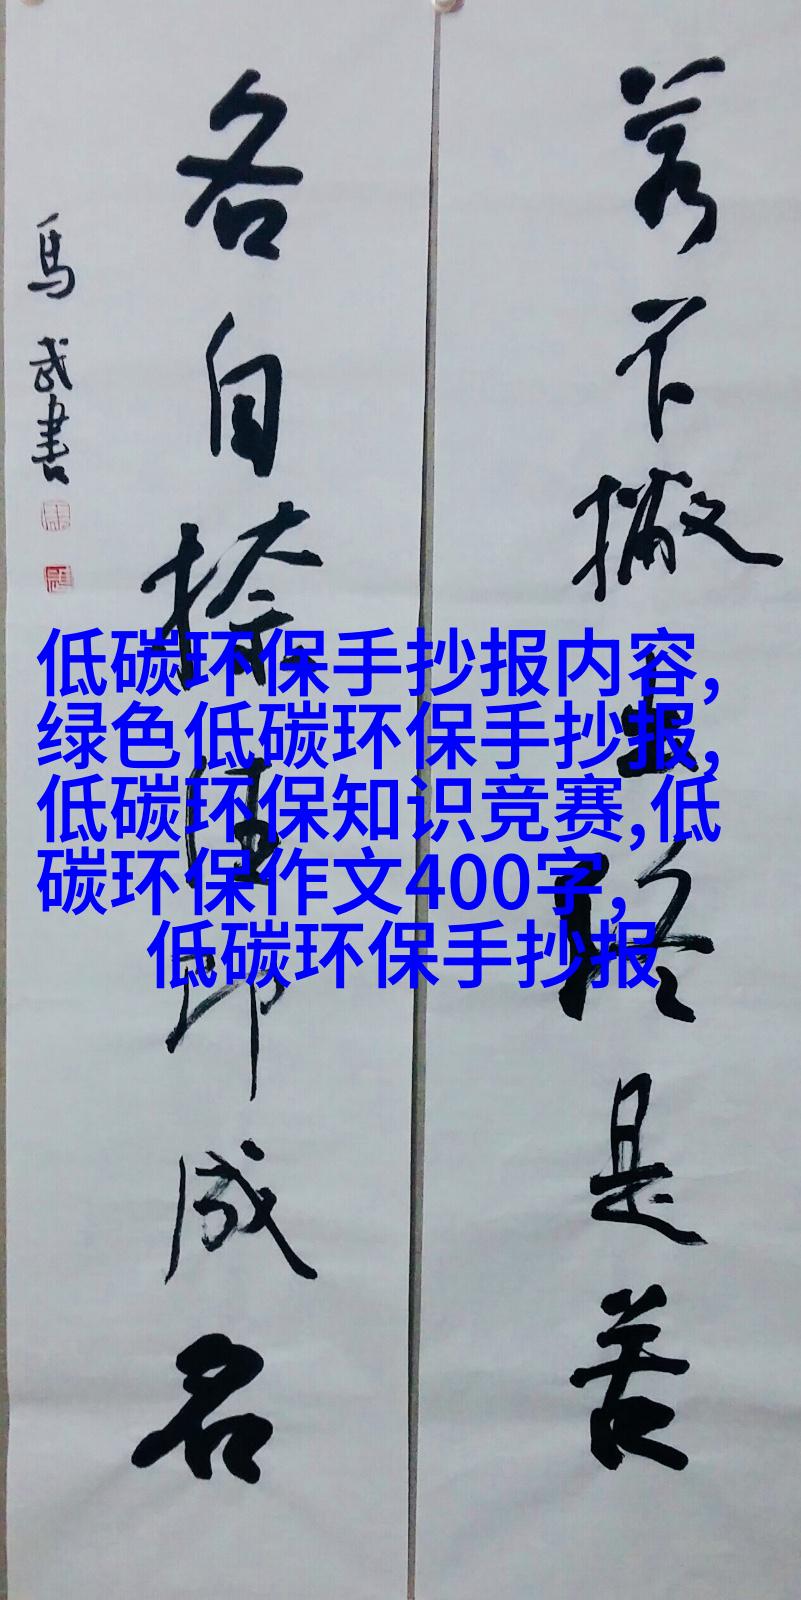 若不撇出終是苦
各自捺住即成名
馬武書
低碳环保手抄报内容,
绿色低碳环保手抄报,
低碳环保知识竞赛,低
碳环保作文400字,
低碳环保手抄报